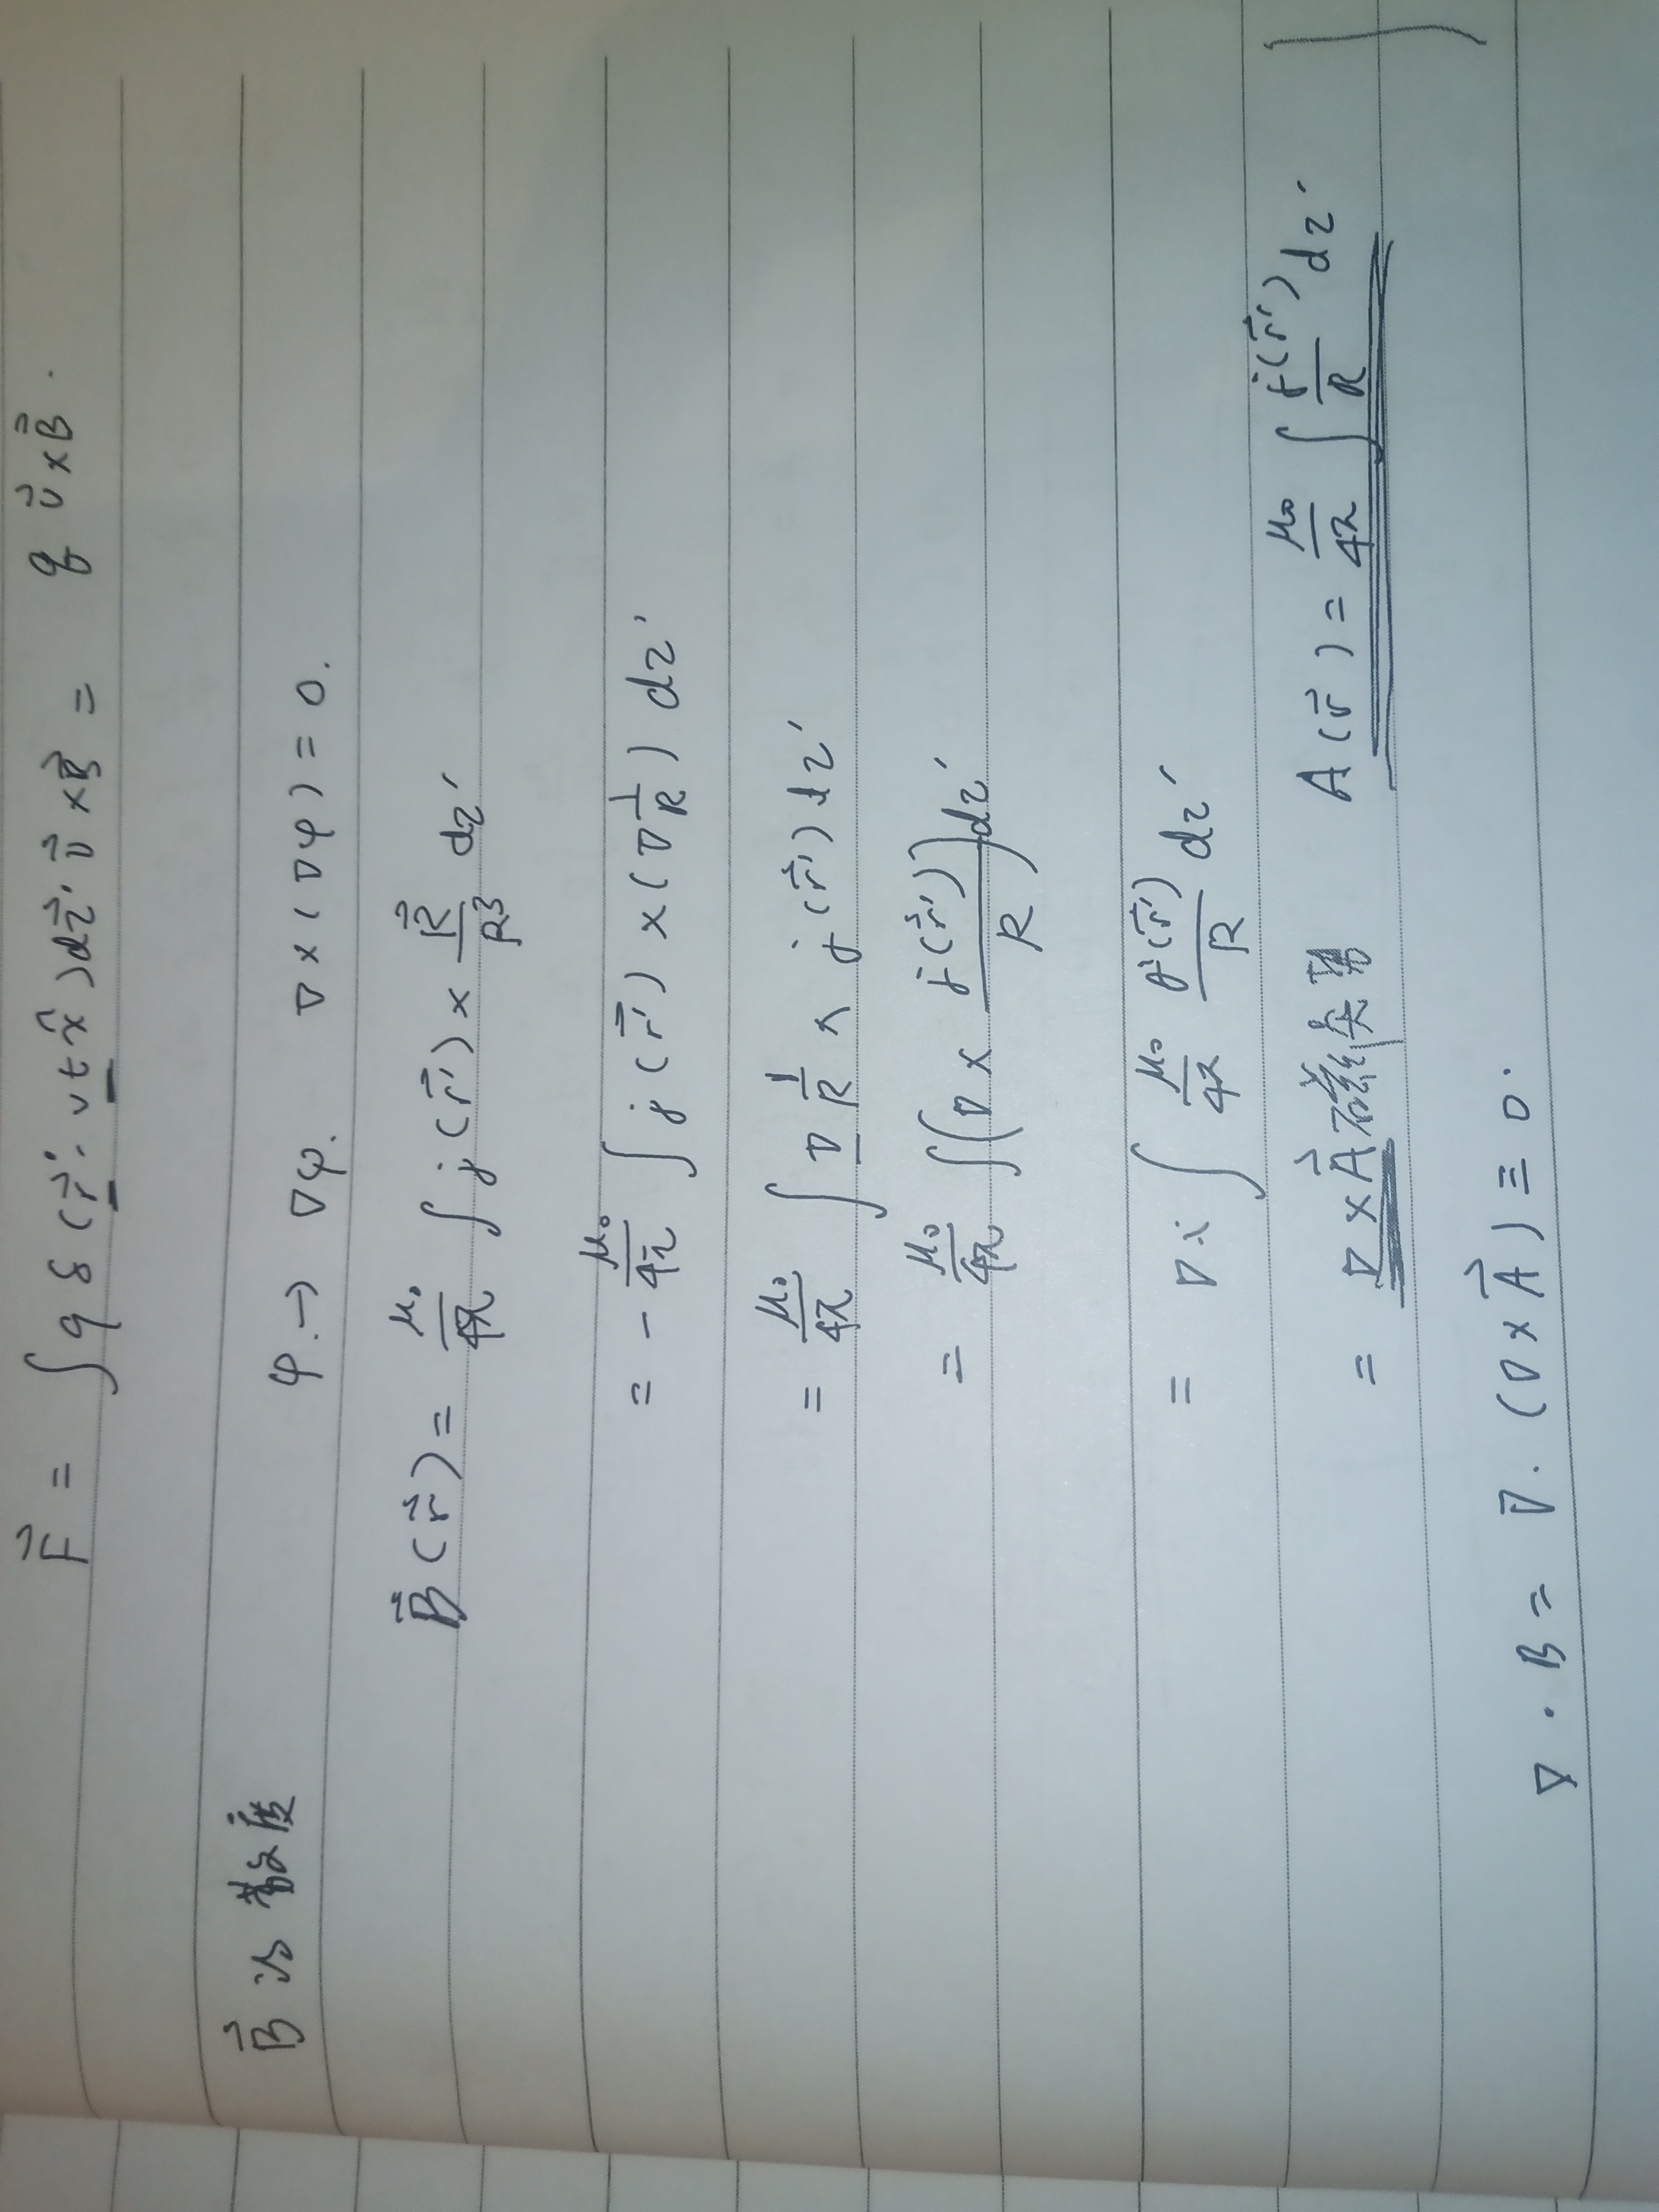 F⃗ = ∫ q δ(r⃗' - vt x̂) dτ' v⃗ × B⃗ = q v⃗ × B⃗ .
B⃗ 的 散度
φ → ∇φ. ∇ × (∇φ) = 0.
B⃗(r⃗) = μ₀/4π ∫ j(r⃗') × R⃗/R³ dτ'
= - μ₀/4π ∫ j(r⃗') × (∇ 1/R) dτ'
= μ₀/4π ∫ ∇ 1/R × j(r⃗') dτ'
= μ₀/4π ∫ (∇ × j(r⃗')/R) dτ'
= ∇ × ∫ μ₀/4π j(r⃗')/R dτ'
= ∇ × A⃗ 磁矢势 A(r⃗) = μ₀/4π ∫ j(r⃗')/R dτ'
∇ · B = ∇ · (∇ × A⃗) ≡ 0.